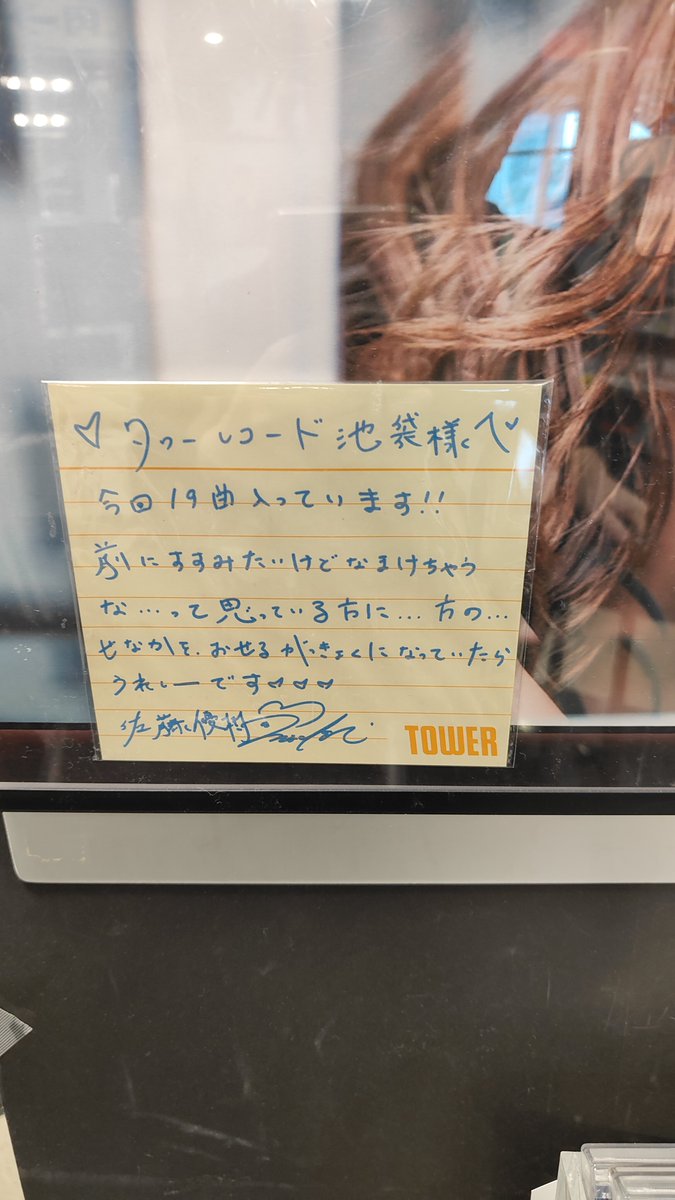 ♡タワーレコード池袋様へ♡
今回19曲入っています!!
前にすすみたいけどなまけちゃう
な…って思っている方に…方の…
せなかを、おせるがっきょくになっていたら
うれしーです♡♡♡
佐藤優樹
TOWER